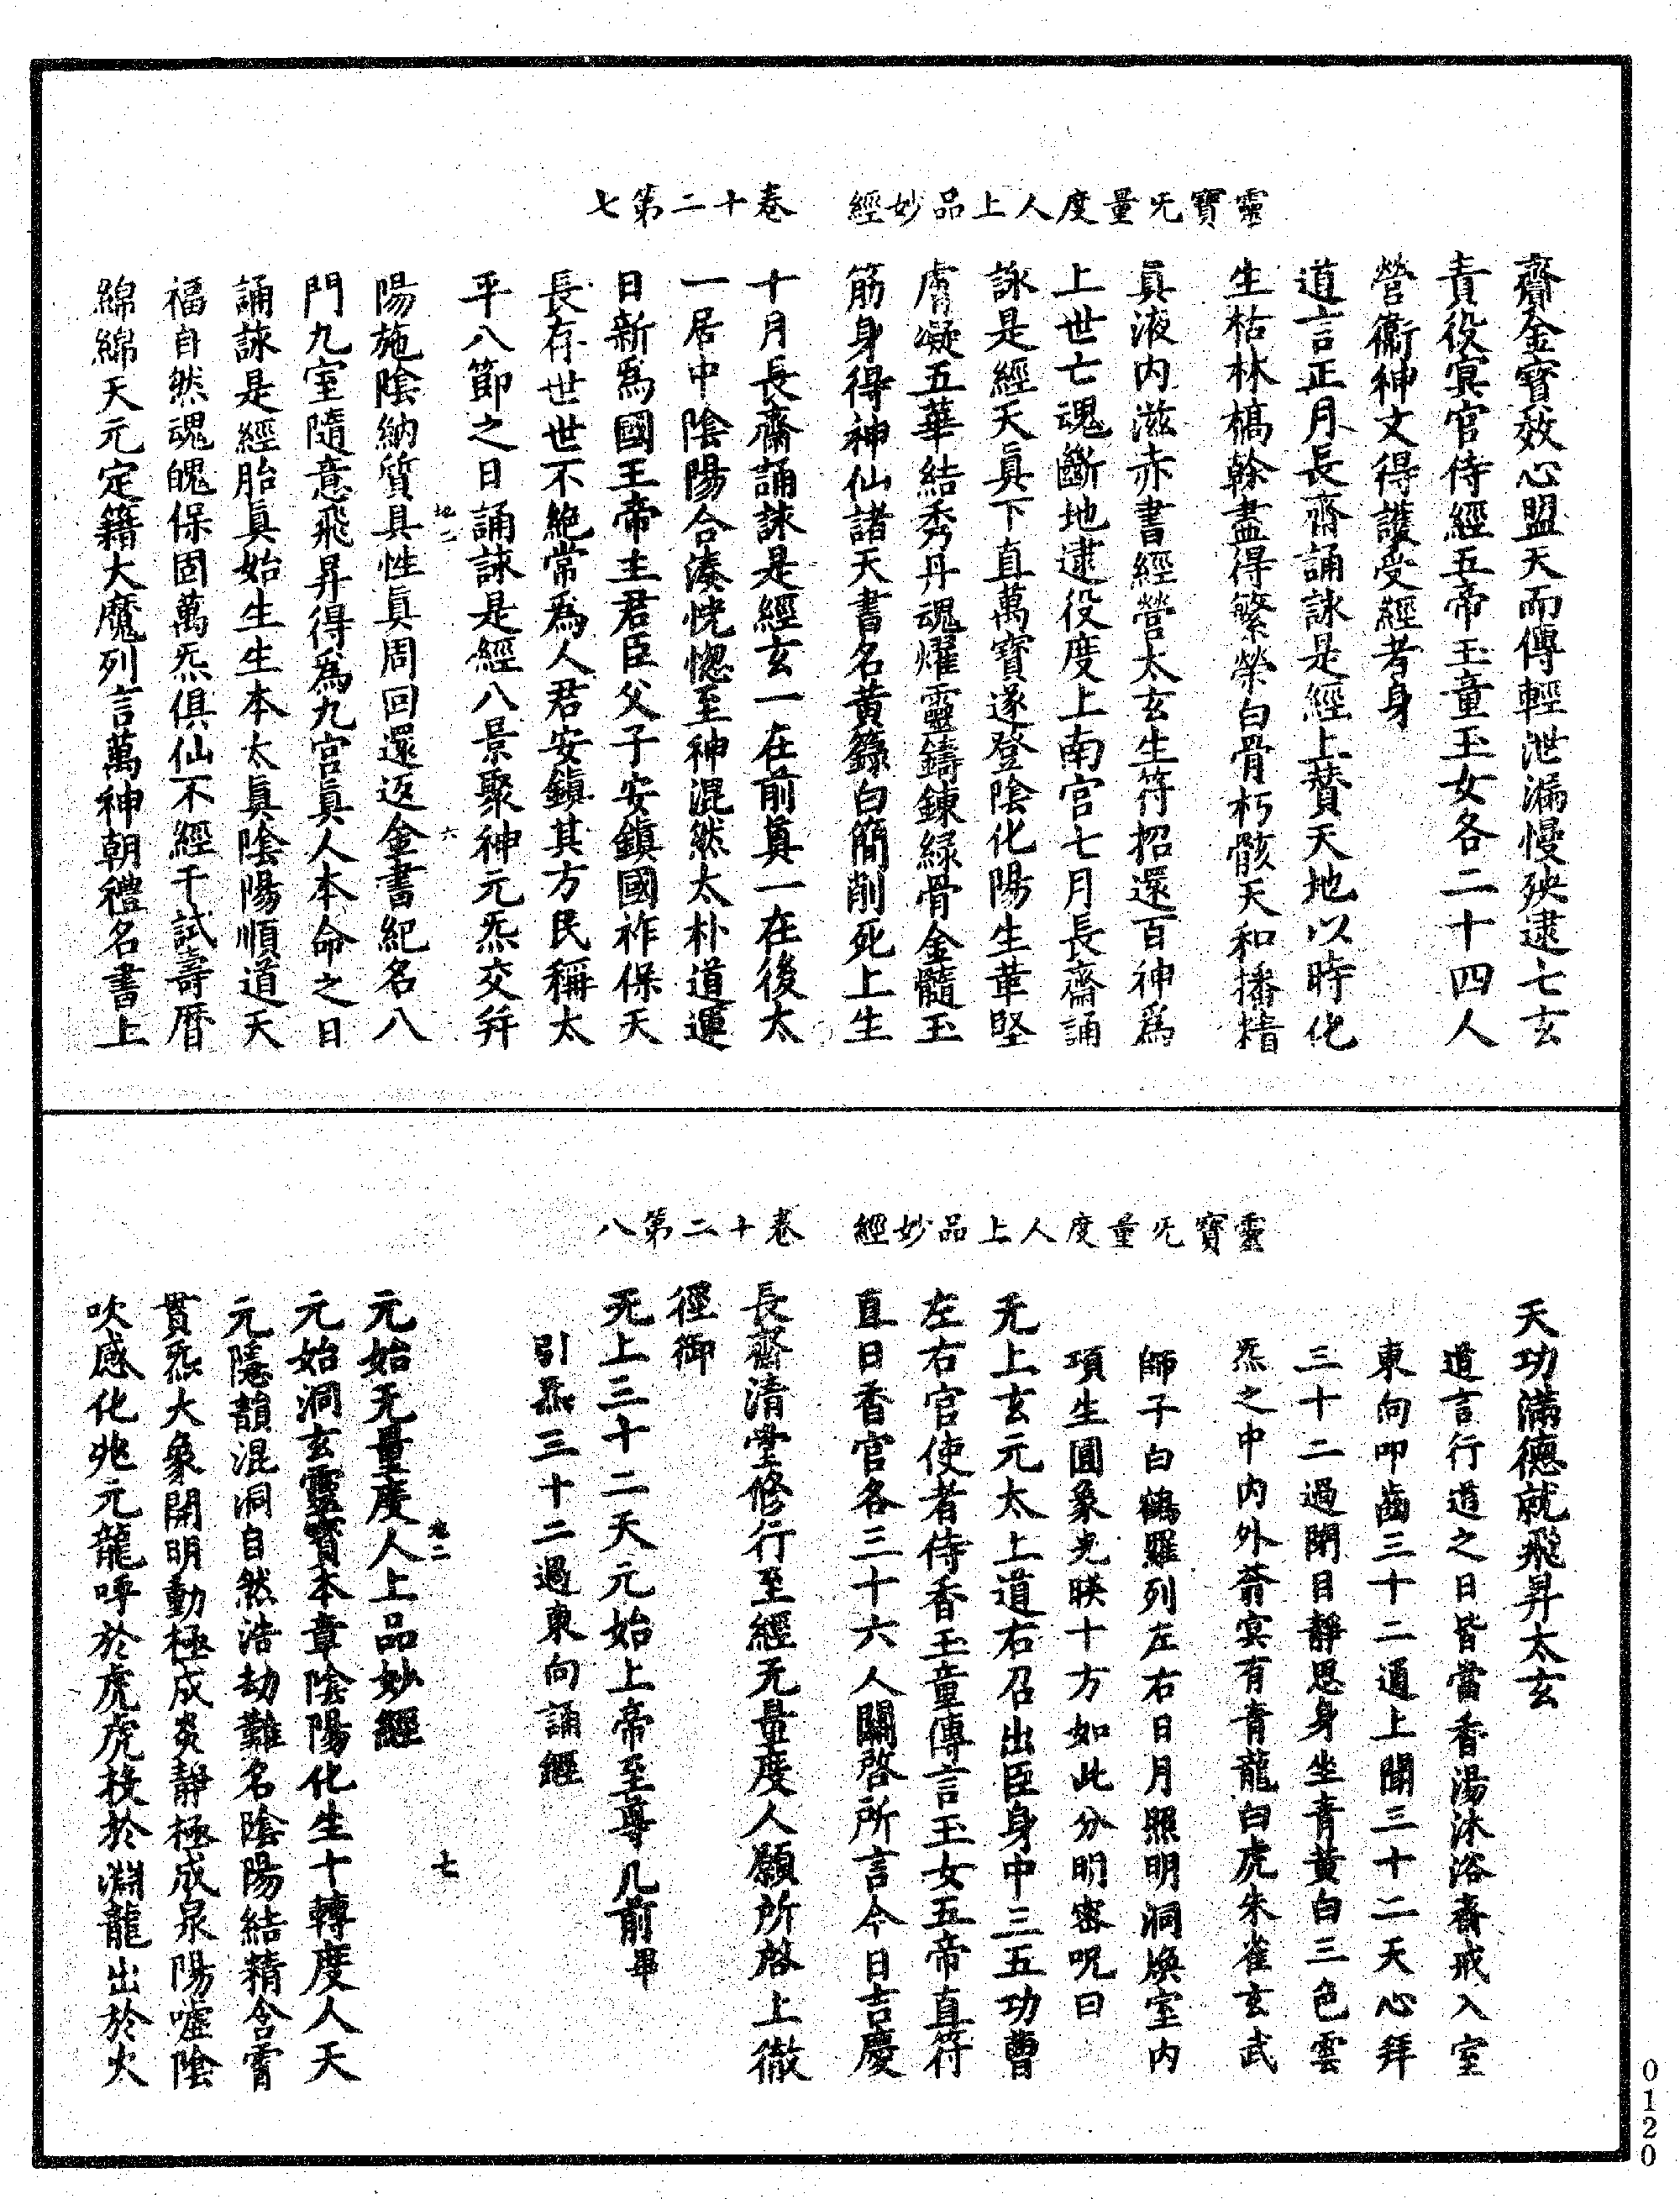 靈寶无量度人上品妙經　卷十二第七
齎金寶效心盟天而傳輕泄漏慢殃逮七玄
責役冥官侍經五帝玉童玉女各二十四人
營衞神文得護受經者身
道言正月長齋誦詠是經上贊天地以時化
生枯林槁榦盡得繁榮白骨朽骸天和播精
眞液內滋赤書經營太玄生符招還百神爲
上世亡魂斷地逮役度上南宮七月長齋誦
詠是經天眞下直萬寶遂登陰化陽生革堅
膚凝五華結秀丹魂燿靈鑄鍊綠骨金髓玉
筋身得神仙諸天書名黃籙白簡削死上生
十月長齋誦詠是經玄一在前眞一在後太
一居中陰陽合湊恍惚至神混然太朴道運
日新爲國王帝主君臣父子安鎭國祚保天
長存世世不絕常爲人君安鎭其方民稱太
平八節之日誦詠是經八景聚神元炁交并
陽施陰納質具性眞周回還返金書紀名八
地二　六
門九室隨意飛昇得爲九宮眞人本命之日
誦詠是經胎眞始生生本太眞陰陽順道天
福自然魂魄保固萬炁俱仙不經干試壽曆
綿綿天元定籍大魔列言萬神朝禮名書上
靈寶无量度人上品妙經　卷十二第八
天功滿德就飛昇太玄
道言行道之日皆當香湯沐浴齋戒入室
東向叩齒三十二通上聞三十二天心拜
三十二過閉目靜思身坐青黃白三色雲
炁之中內外蓊冥有青龍白虎朱雀玄武
師子白鶴羅列左右日月照明洞煥室內
項生圓象光映十方如此分明密呪曰
无上玄元太上道右召出臣身中三五功曹
左右官使者侍香玉童傳言玉女五帝直符
直日香官各三十六人關啓所言今日吉慶
長齋清堂修行至經无量度人願所啓上徹
徑御
无上三十二天元始上帝至尊几前畢
引炁三十二過東向誦經
地二　七
元始无量度人上品妙經
元始洞玄靈寶本章陰陽化生十轉度人天
元隱韻混洞自然浩劫難名陰陽結精含霄
貫炁大象開明動極成炎靜極成泉陽噓陰
吹感化兆元龍呼於虎虎投於淵龍出於火
0120